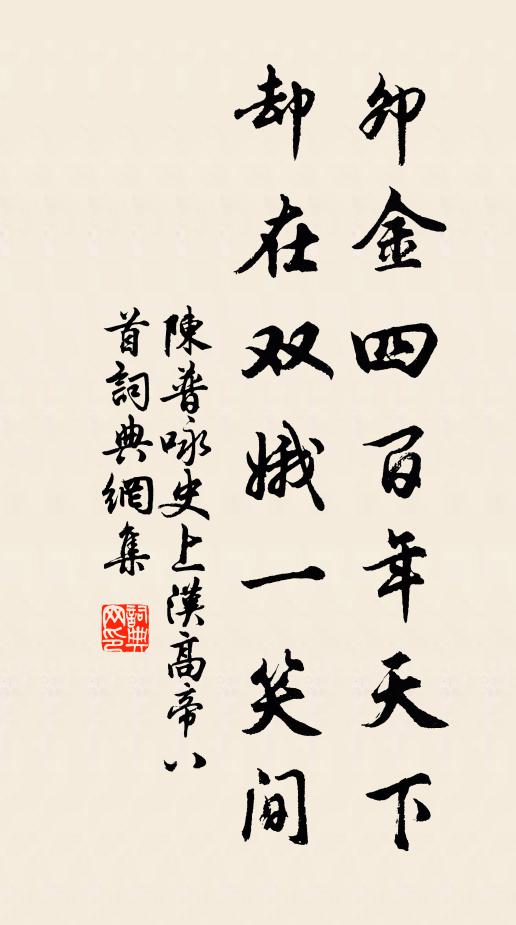 卯金四百年天下
却在双娥一笑间
陳普咏史上漢高帝八
首詞典網集
詞典網印